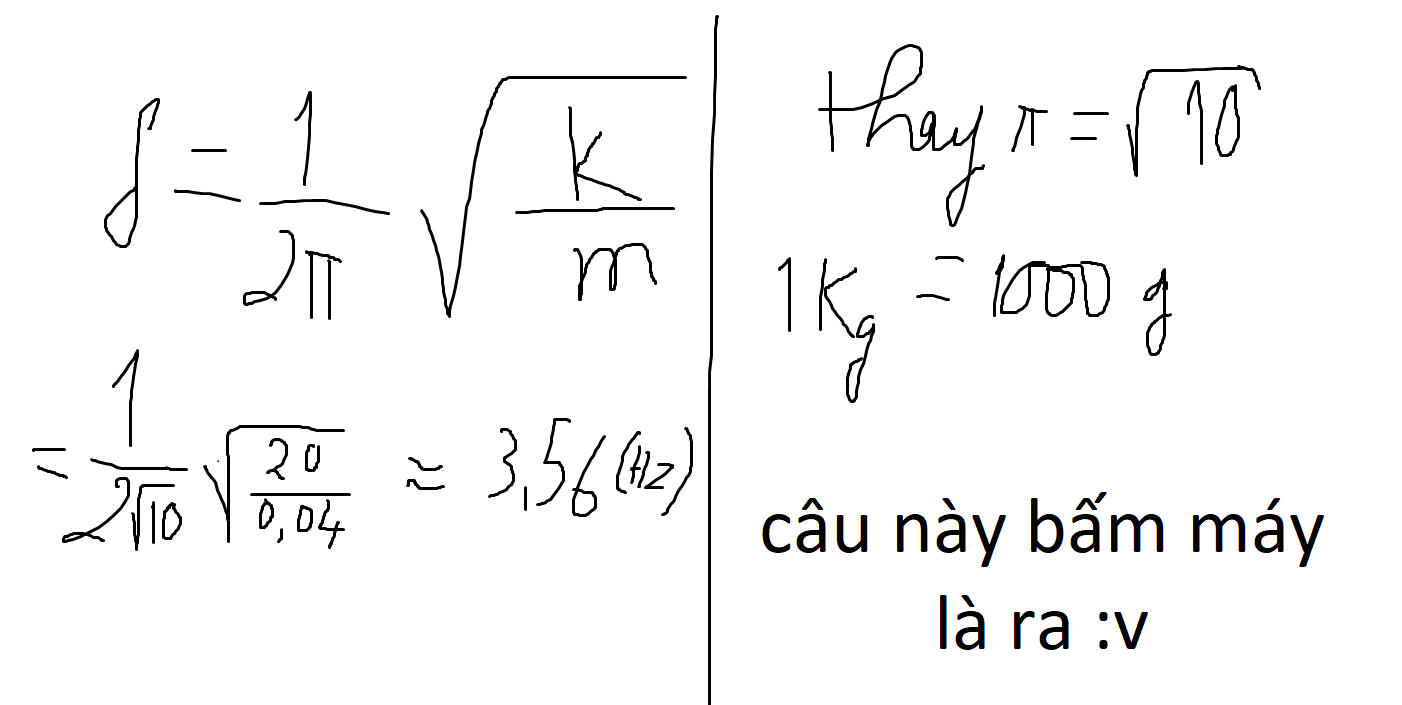 f = 1/2π √(k/m)
= 1/2√10 √(20/0,04) ≈ 3,56 (Hz)
thay π = √10
1Kg = 1000 g
câu này bấm máy
là ra :v